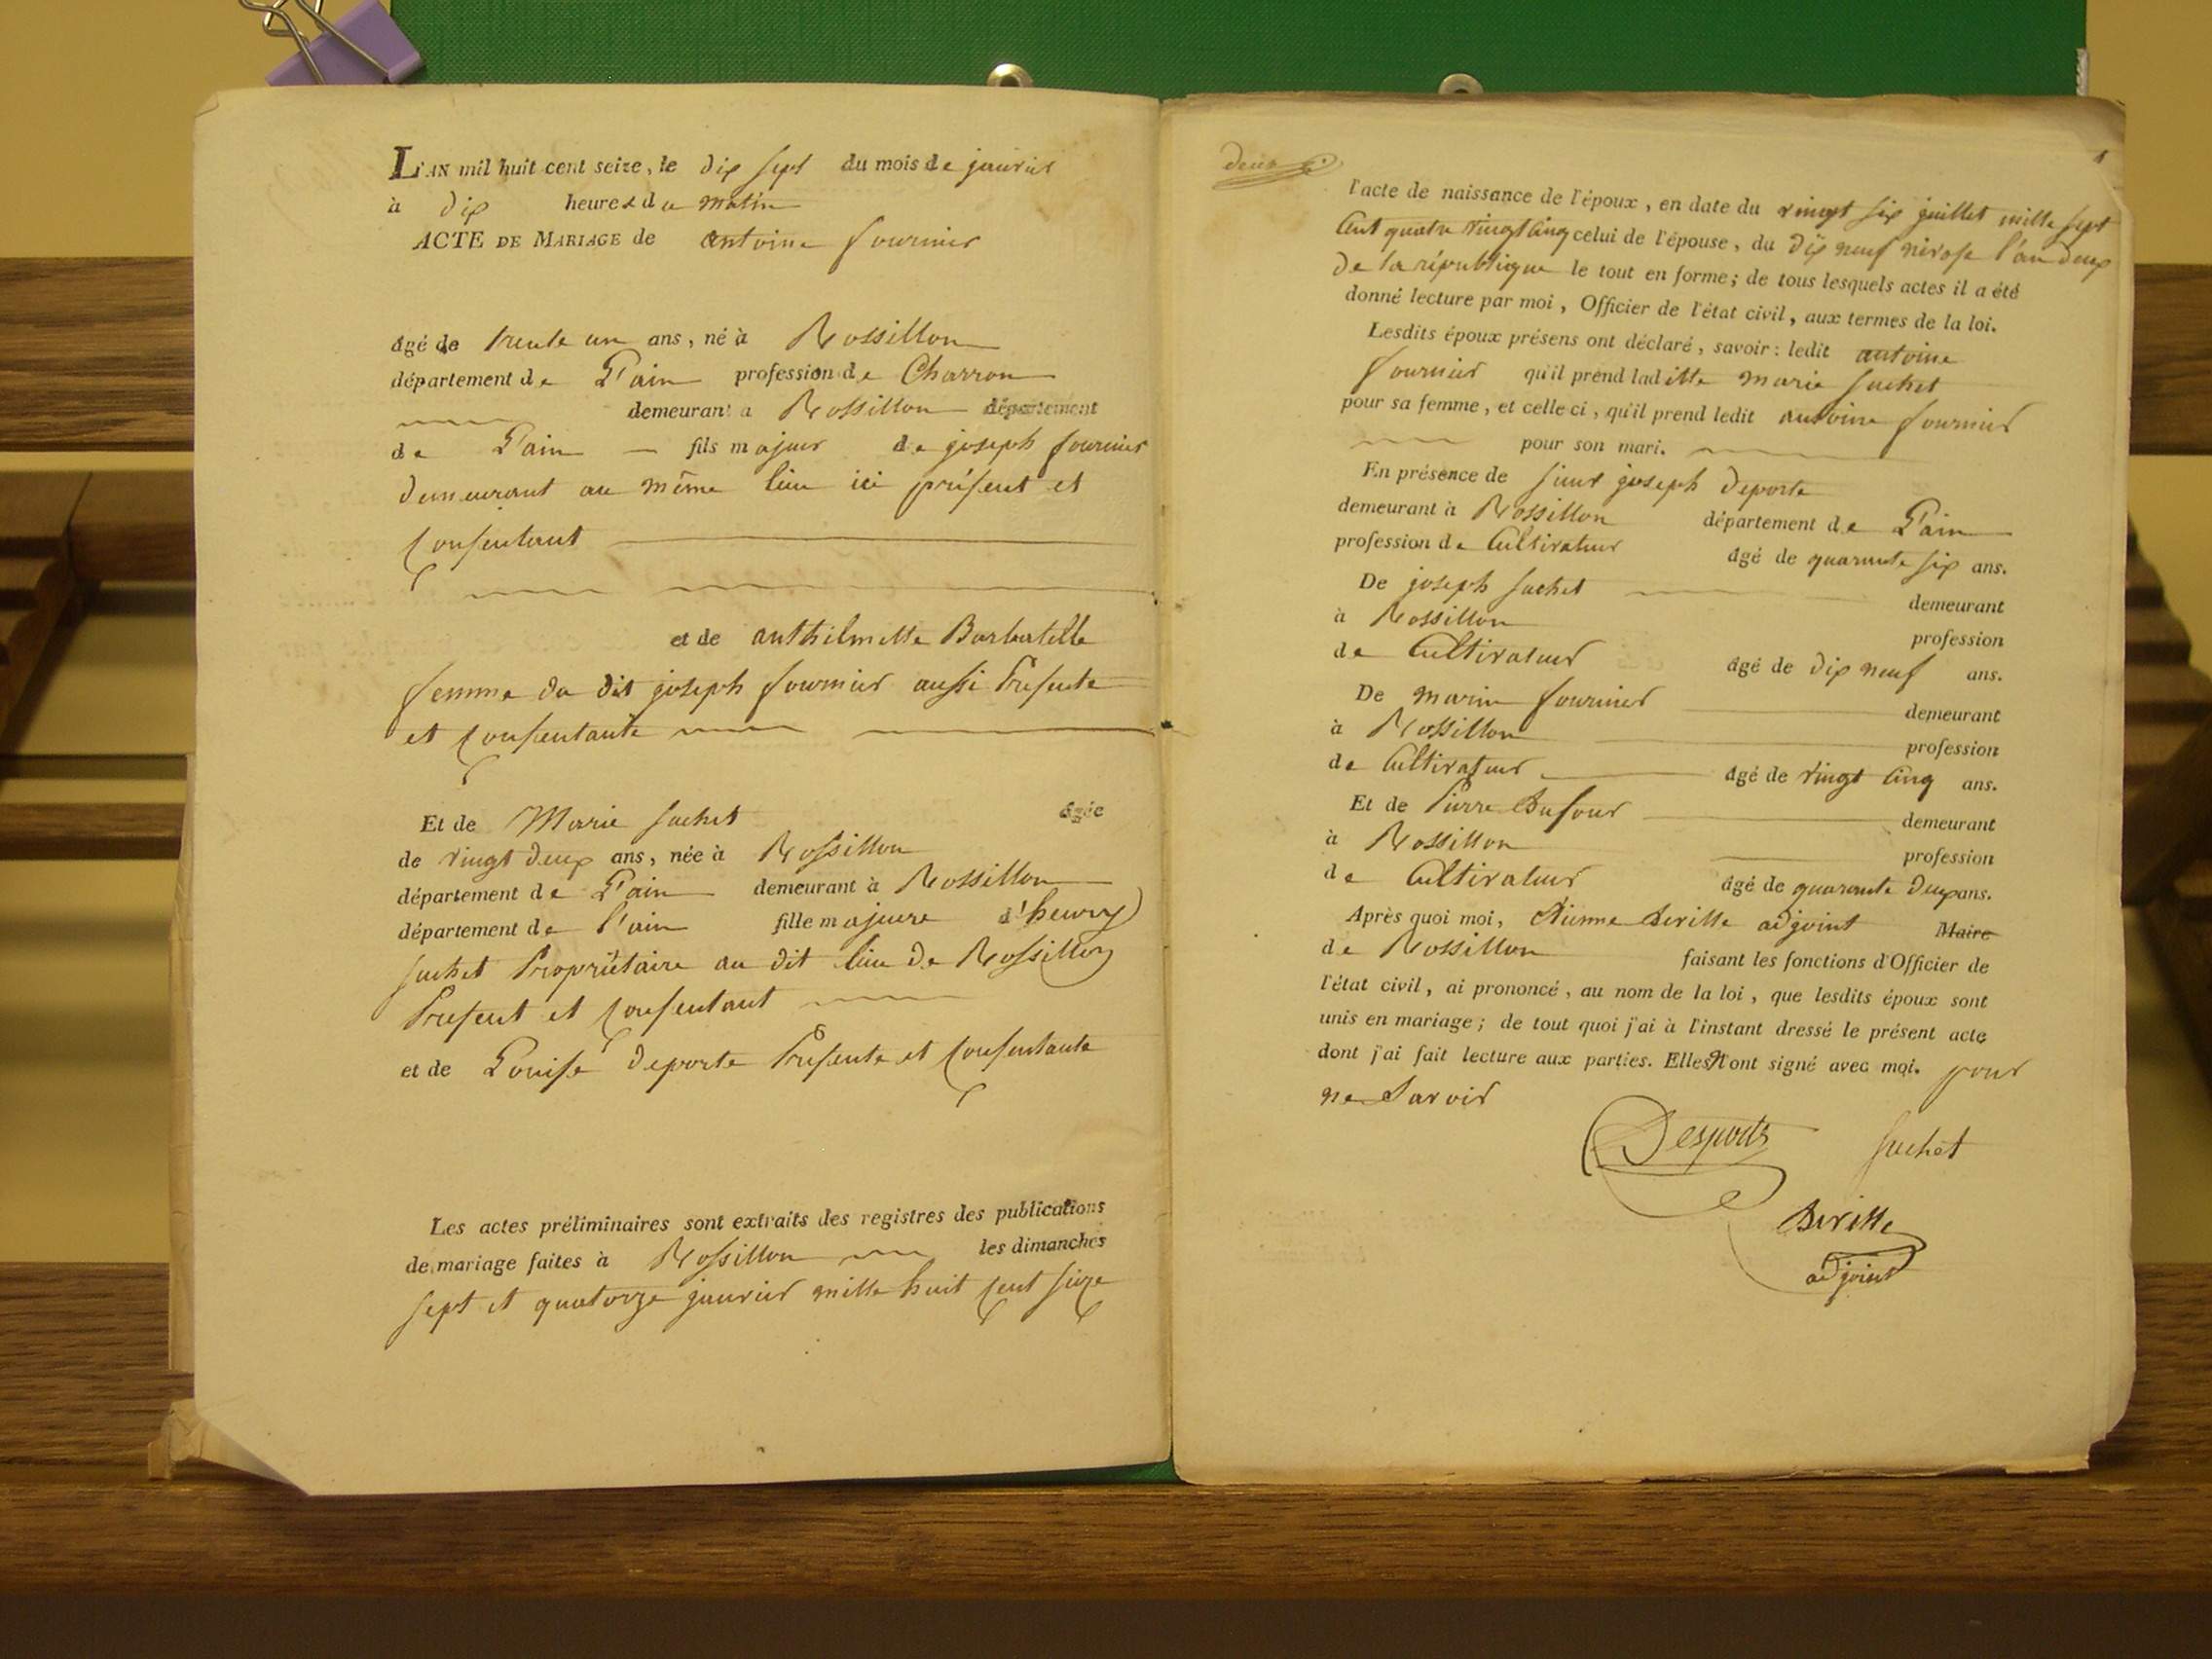 L'AN mil huit cent seize, le dix sept du mois de janvier
à dix heures du matin
ACTE DE MARIAGE de antoine fournier
âgé de trente un ans, né à Rossillon
département de L'ain profession de Charron
demeurant a Rossillon département
de L'ain fils majeur de joseph fournier
demeurant au même lieu ici présent et
Consentant
et de anthilmette Barbatelle
femme du dit joseph fournier aussi Presente
et Consentante
Et de Marie suchet âgée
de vingt deux ans, née à Rossillon
département de L'ain demeurant à Rossillon
département de l'ain fille majeure d'henry
suchet Propriétaire au dit lieu de Rossillon
Present et Consentant
et de Louise deporte Presente et Consentante
Les actes préliminaires sont extraits des registres des publications
de mariage faites à Rossillon les dimanches
sept et quatorze janvier mille huit Cent seize
deux
1
l'acte de naissance de l'époux, en date du vingt six juillet mille sept
Cent quatre vingt Cinq celui de l'épouse, du dix neuf nivose l'an deux
de la république le tout en forme; de tous lesquels actes il a été
donné lecture par moi, Officier de l'état civil, aux termes de la loi.
Lesdits époux présens ont déclaré, savoir: ledit antoine
fournier qu'il prend laditte marie suchet
pour sa femme, et celle ci, qu'il prend ledit antoine fournier
pour son mari.
En présence de sieur joseph deporte
demeurant à Rossillon département de L'ain
profession de Cultivateur âgé de quarante six ans.
De joseph suchet demeurant
à Rossillon profession
de Cultivateur âgé de dix neuf ans.
De marin fournier demeurant
à Rossillon profession
de Cultivateur âgé de vingt Cinq ans.
Et de Pierre Dufour demeurant
à Rossillon profession
de Cultivateur âgé de quarante deux ans.
Après quoi moi, Etienne Dville adjoint Maire
de Rossillon faisant les fonctions d'Officier de
l'état civil, ai prononcé, au nom de la loi, que lesdits époux sont
unis en mariage; de tout quoi j'ai à l'instant dressé le présent acte
dont j'ai fait lecture aux parties. Elles n'ont signé avec moi. pour
ne Savoir
Desports suchet
adjoint